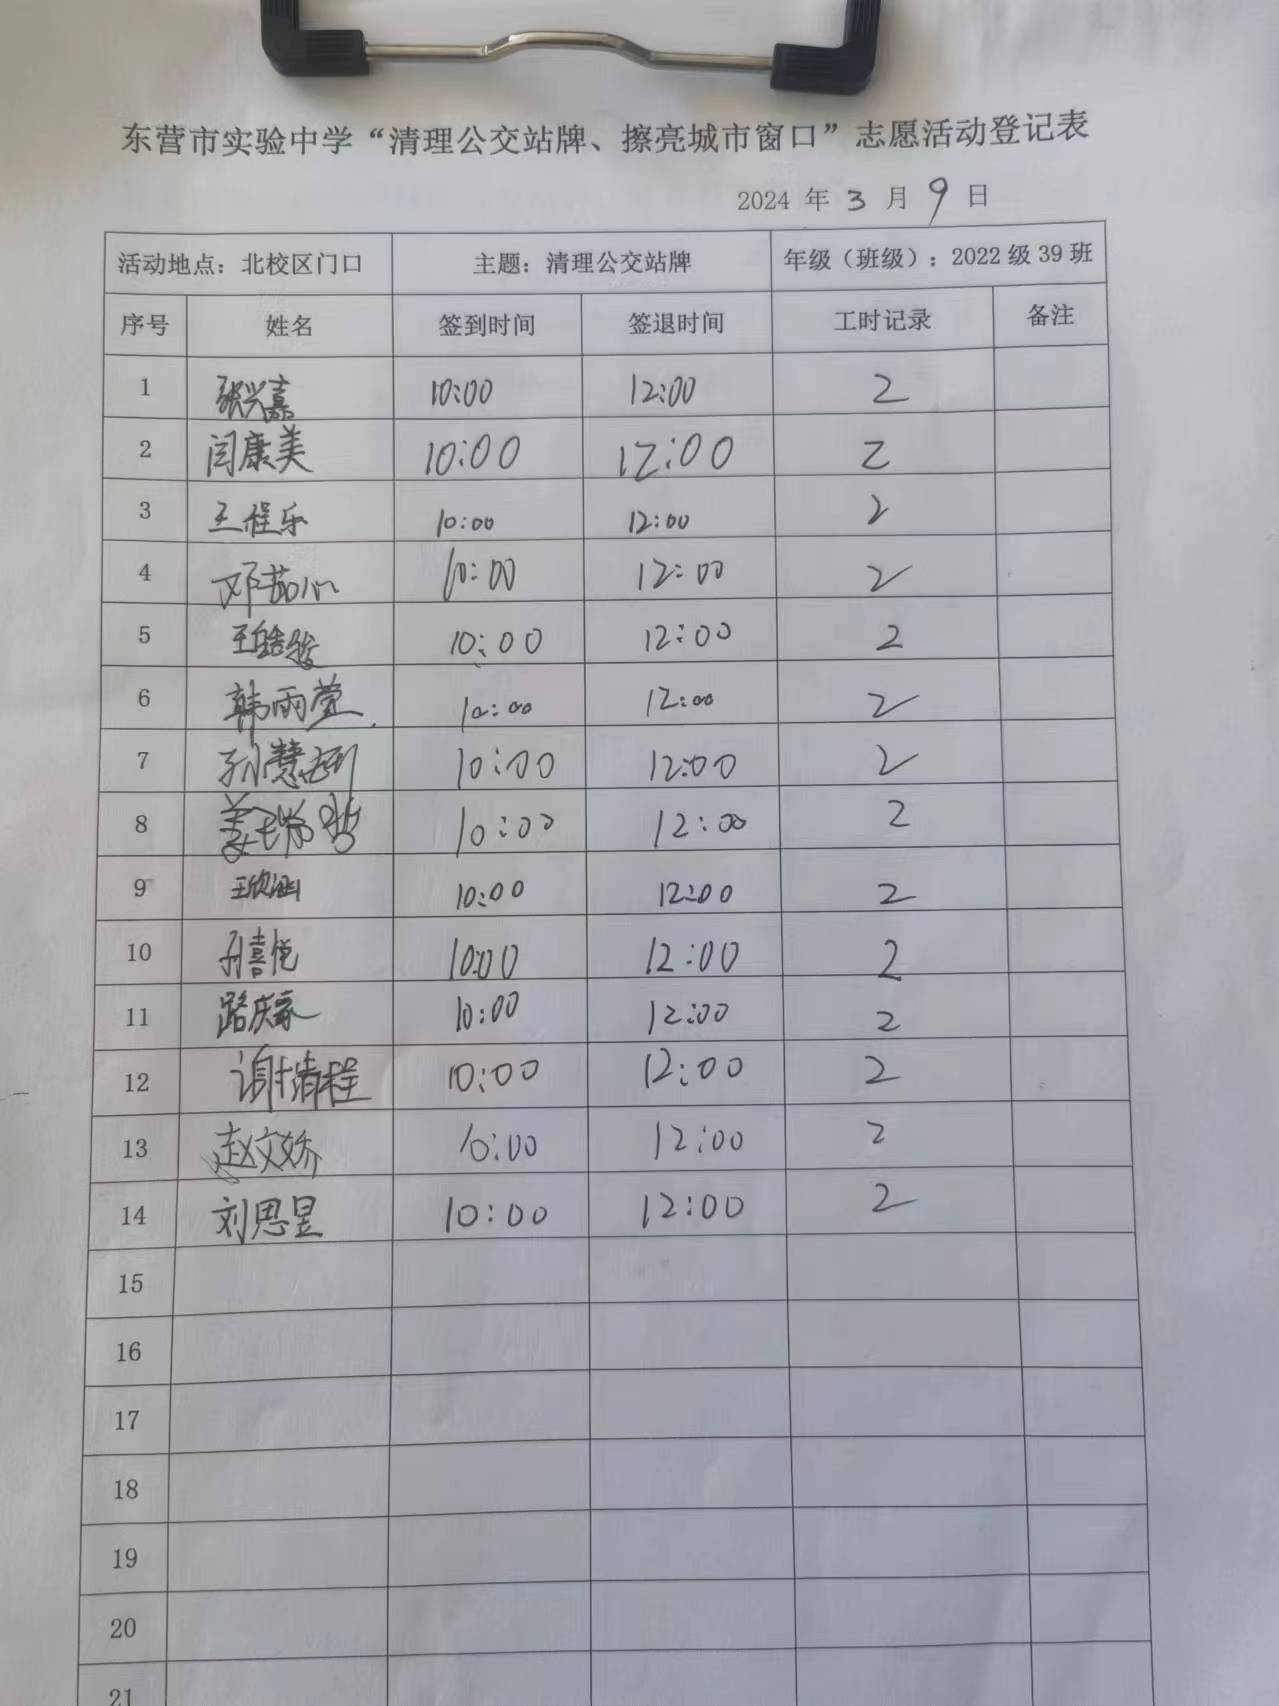 东营市实验中学“清理公交站牌、擦亮城市窗口”志愿活动登记表
2024 年 3 月 9 日
活动地点：北校区门口 主题：清理公交站牌 年级（班级）：2022 级 39 班
序号 姓名 签到时间 签退时间 工时记录 备注
1 张兴嘉 10:00 12:00 2
2 闫康美 10:00 12:00 2
3 王程乐 10:00 12:00 2
4 邓茹心 10:00 12:00 2
5 10:00 12:00 2
6 韩雨萱 10:00 12:00 2
7 孙慧 10:00 12:00 2
8 姜瑞哲 10:00 12:00 2
9 王欣涵 10:00 12:00 2
10 孙喜悦 10:00 12:00 2
11 路庆 10:00 12:00 2
12 谢清程 10:00 12:00 2
13 赵文娇 10:00 12:00 2
14 刘思昱 10:00 12:00 2
15
16
17
18
19
20
21